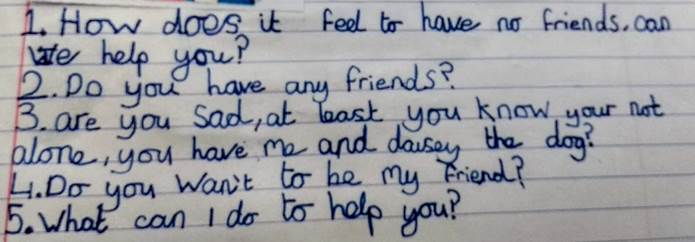 1. How does it feel to have no friends. can
we help you?
2. Do you have any friends?
3. are you sad, at least you know your not
alone, you have me and daisey the dog?
4. Do you wan't to be my friend?
5. What can I do to help you?